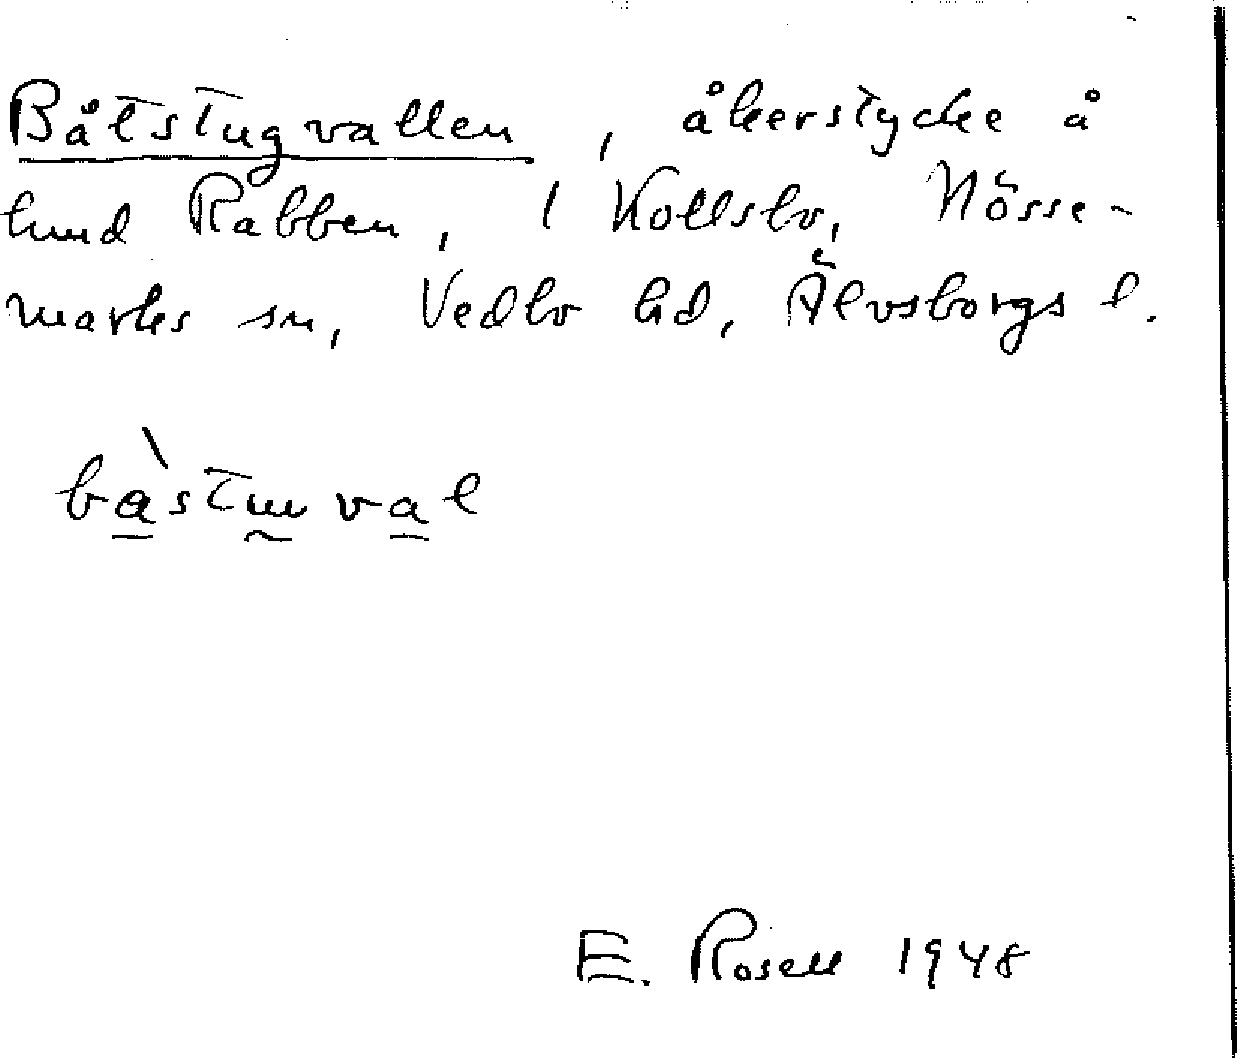 Båtstugvallen, åkerstycke å
lund Rabben, 1 Kollsbo, Nösse-
marks sn, Vedbo hd, Älvsborgs l.
båstuval
E. Rosell 1948